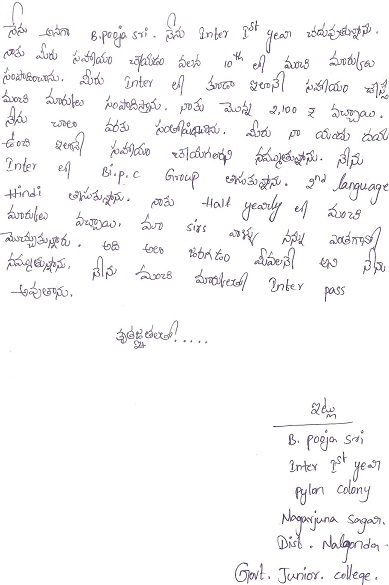 నేను అనగా B.pooja sri. నేను Inter Ist year చదువుతున్నాను.
నాకు మీరు సహాయం చేయడం వలన 10th లో మంచి మార్కులు
సంపాదించాను. మీరు Inter లో కూడా ఇలానే సహాయం చేస్తే
మంచి మార్కులు సంపాదిస్తాను. నాకు మొన్న 2,100 ₹ వచ్చాయి.
నేను చాలా వరకు సంతోషించాను. మీరు నా యందు దయ
ఉంచి ఇలానే సహాయం చేయగలరని నమ్ముతున్నాను. నేను
Inter లో Bi.p.c Group తీసుకున్నాను. 2nd language
Hindi తీసుకున్నాను. నాకు Half yearly లో మంచి
మార్కులు వచ్చాయి. మా sirs వాళ్ళు నన్ను ఎంతగానో
మెచ్చుకున్నారు. అది అలా జరగడం మీవలనే అని నేను
నమ్ముతున్నాను. నేను మంచి మార్కులతో Inter pass
అవుతాను.
కృతజ్ఞతలతో.....
ఇట్లు
B. pooja sri
Inter Ist year
pylon colony
Nagarjuna sagar.
Dist. Nalgonda.
Govt. Junior. college.